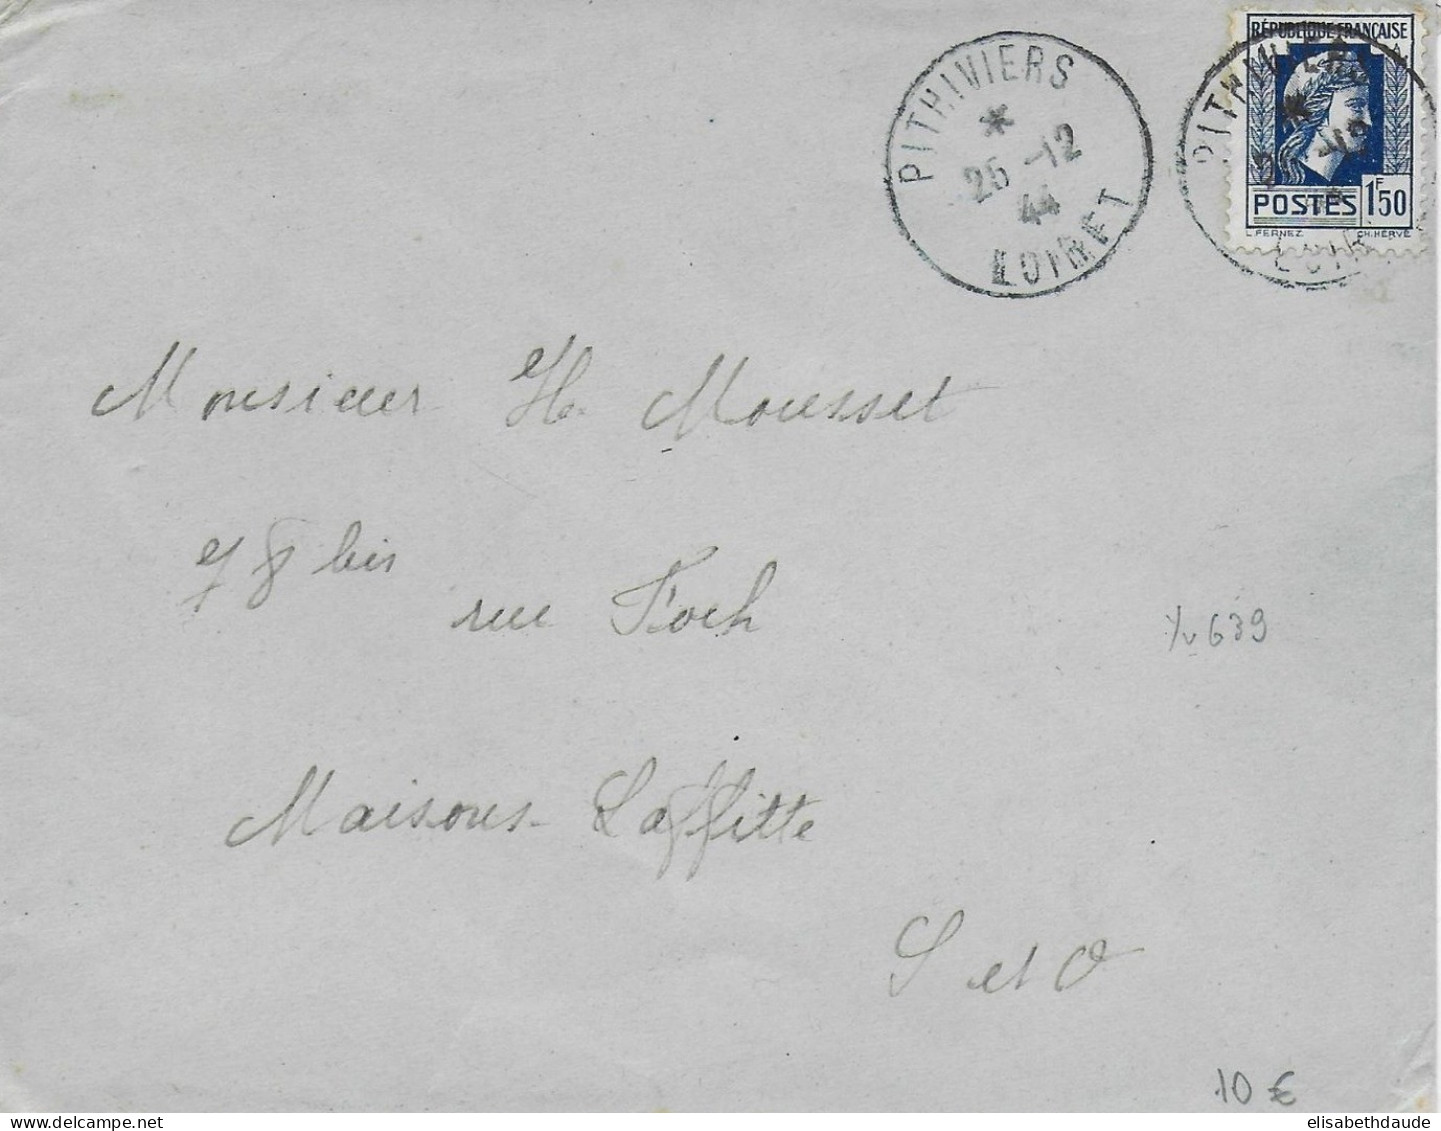 PITHIVIERS
*
25 -12
44
LOIRET
RÉPUBLIQUE FRANÇAISE
POSTES 1F50
L. FERNEZ CH. HERVÉ
PITHIVIERS
*
-12
Monsieur H. Mousset
78 bis
rue Foch
Yv 639
Maisons-Laffitte
S et O
10 €
elisabethdaude